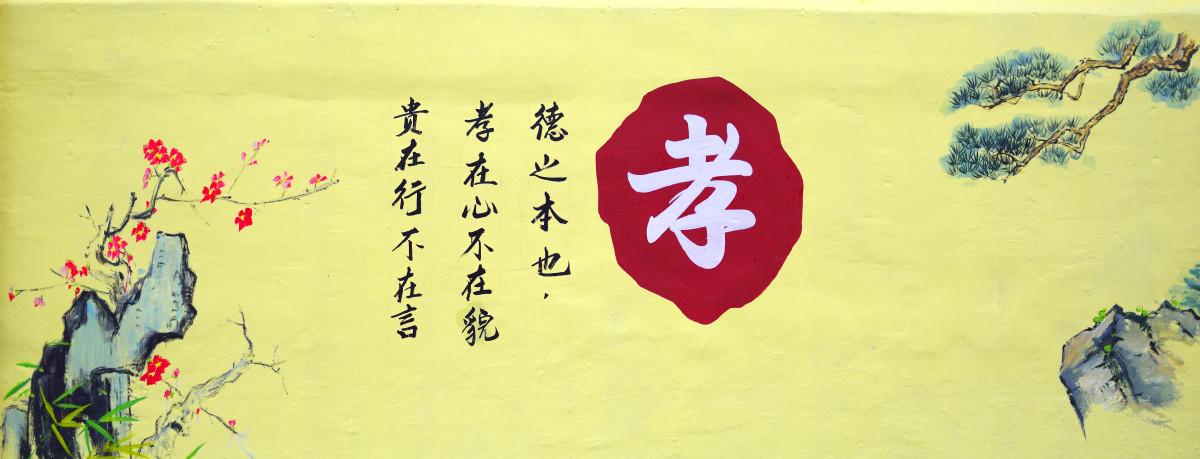 孝
德之本也，
孝在心不在貌
贵在行不在言